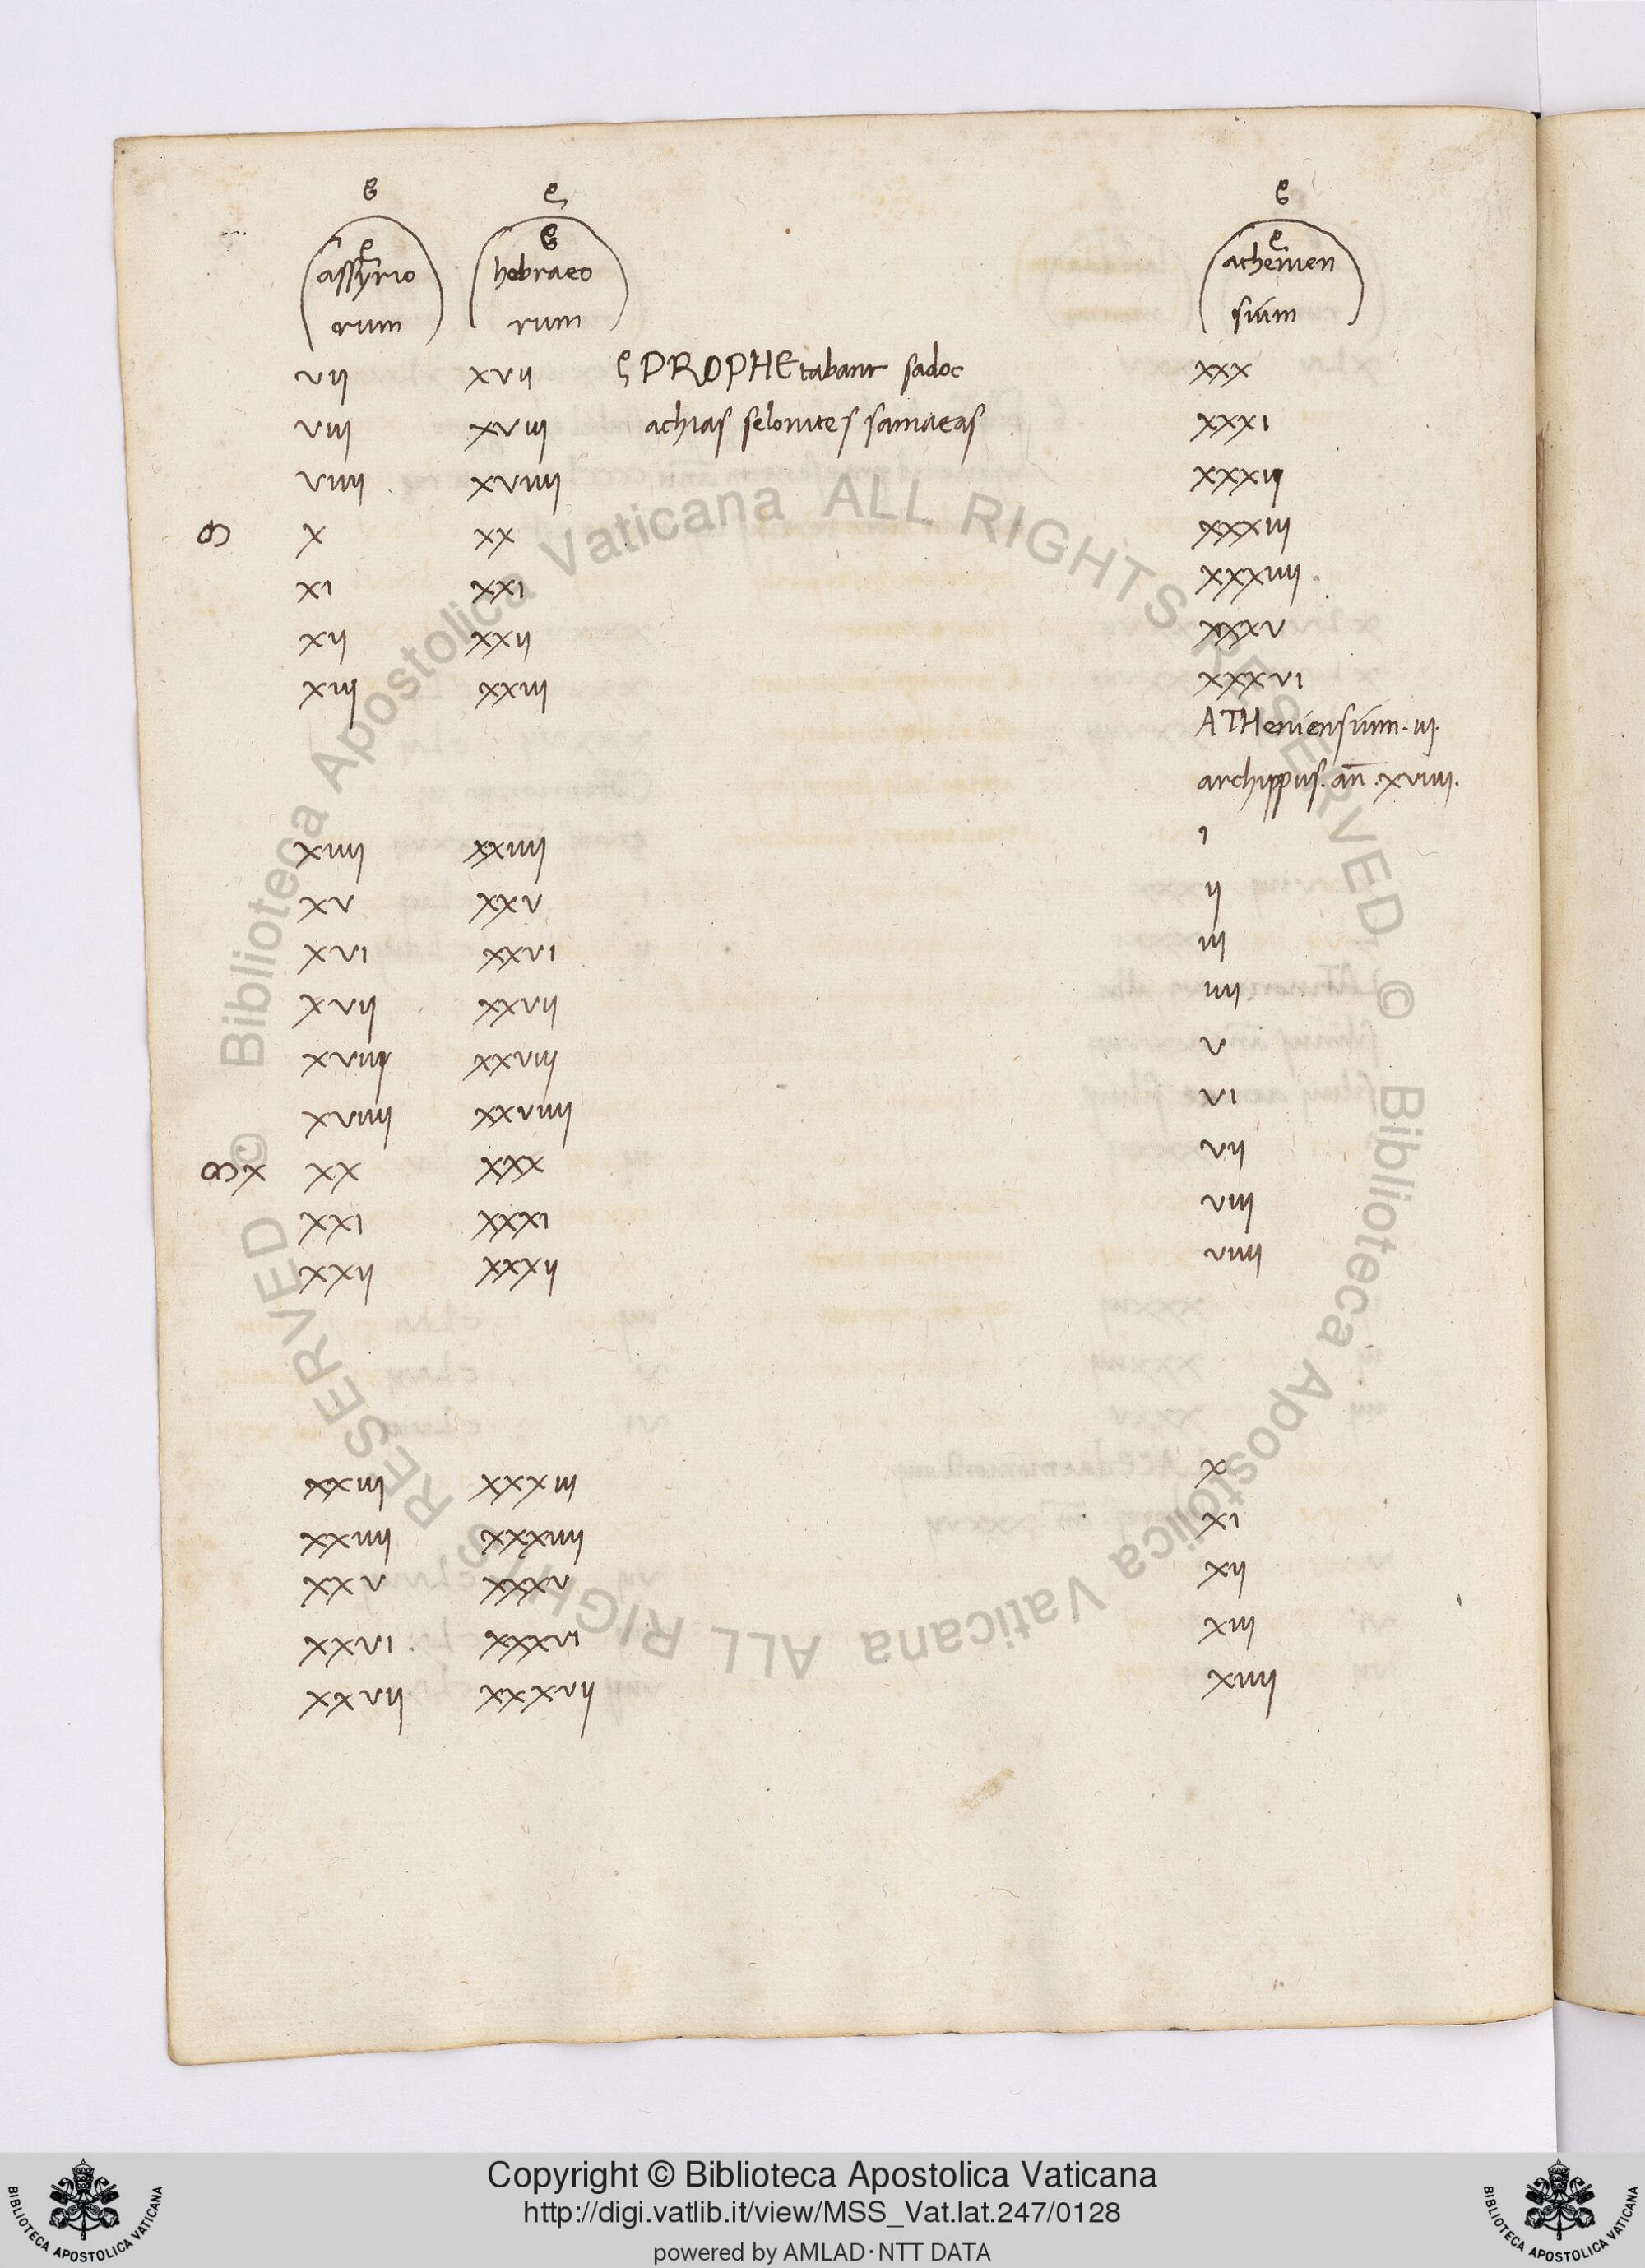 assyrio hebraeo athenien
rum rum sium
vii xvii PROPHEtabant sadoc xxx
viii xviii achias selonites samaeas xxxi
viiii xviiii xxxii
ↀ x xx xxxiii
xi xxi xxxiiii
xii xxii xxxv
xiii xxiii xxxvi
ATHeniensium. iii.
archippus. an̄. xviiii.
xiiii xxiiii i
xv xxv ii
xvi xxvi iii
xvii xxvii iiii
xviii xxviii v
xviiii xxviiii vi
ↀx xx xxx vii
xxi xxxi viii
xxii xxxii viiii
xxiii xxxiii x
xxiiii xxxiiii xi
xxv xxxv xii
xxvi xxxvi xiii
xxvii xxxvii xiiii
© Biblioteca Apostolica Vaticana ALL RIGHTS RESERVED
© Biblioteca Apostolica Vaticana ALL RIGHTS RESERVED
Copyright © Biblioteca Apostolica Vaticana
http://digi.vatlib.it/view/MSS_Vat.lat.247/0128
powered by AMLAD·NTT DATA
BIBLIOTECA APOSTOLICA VATICANA
BIBLIOTECA APOSTOLICA VATICANA